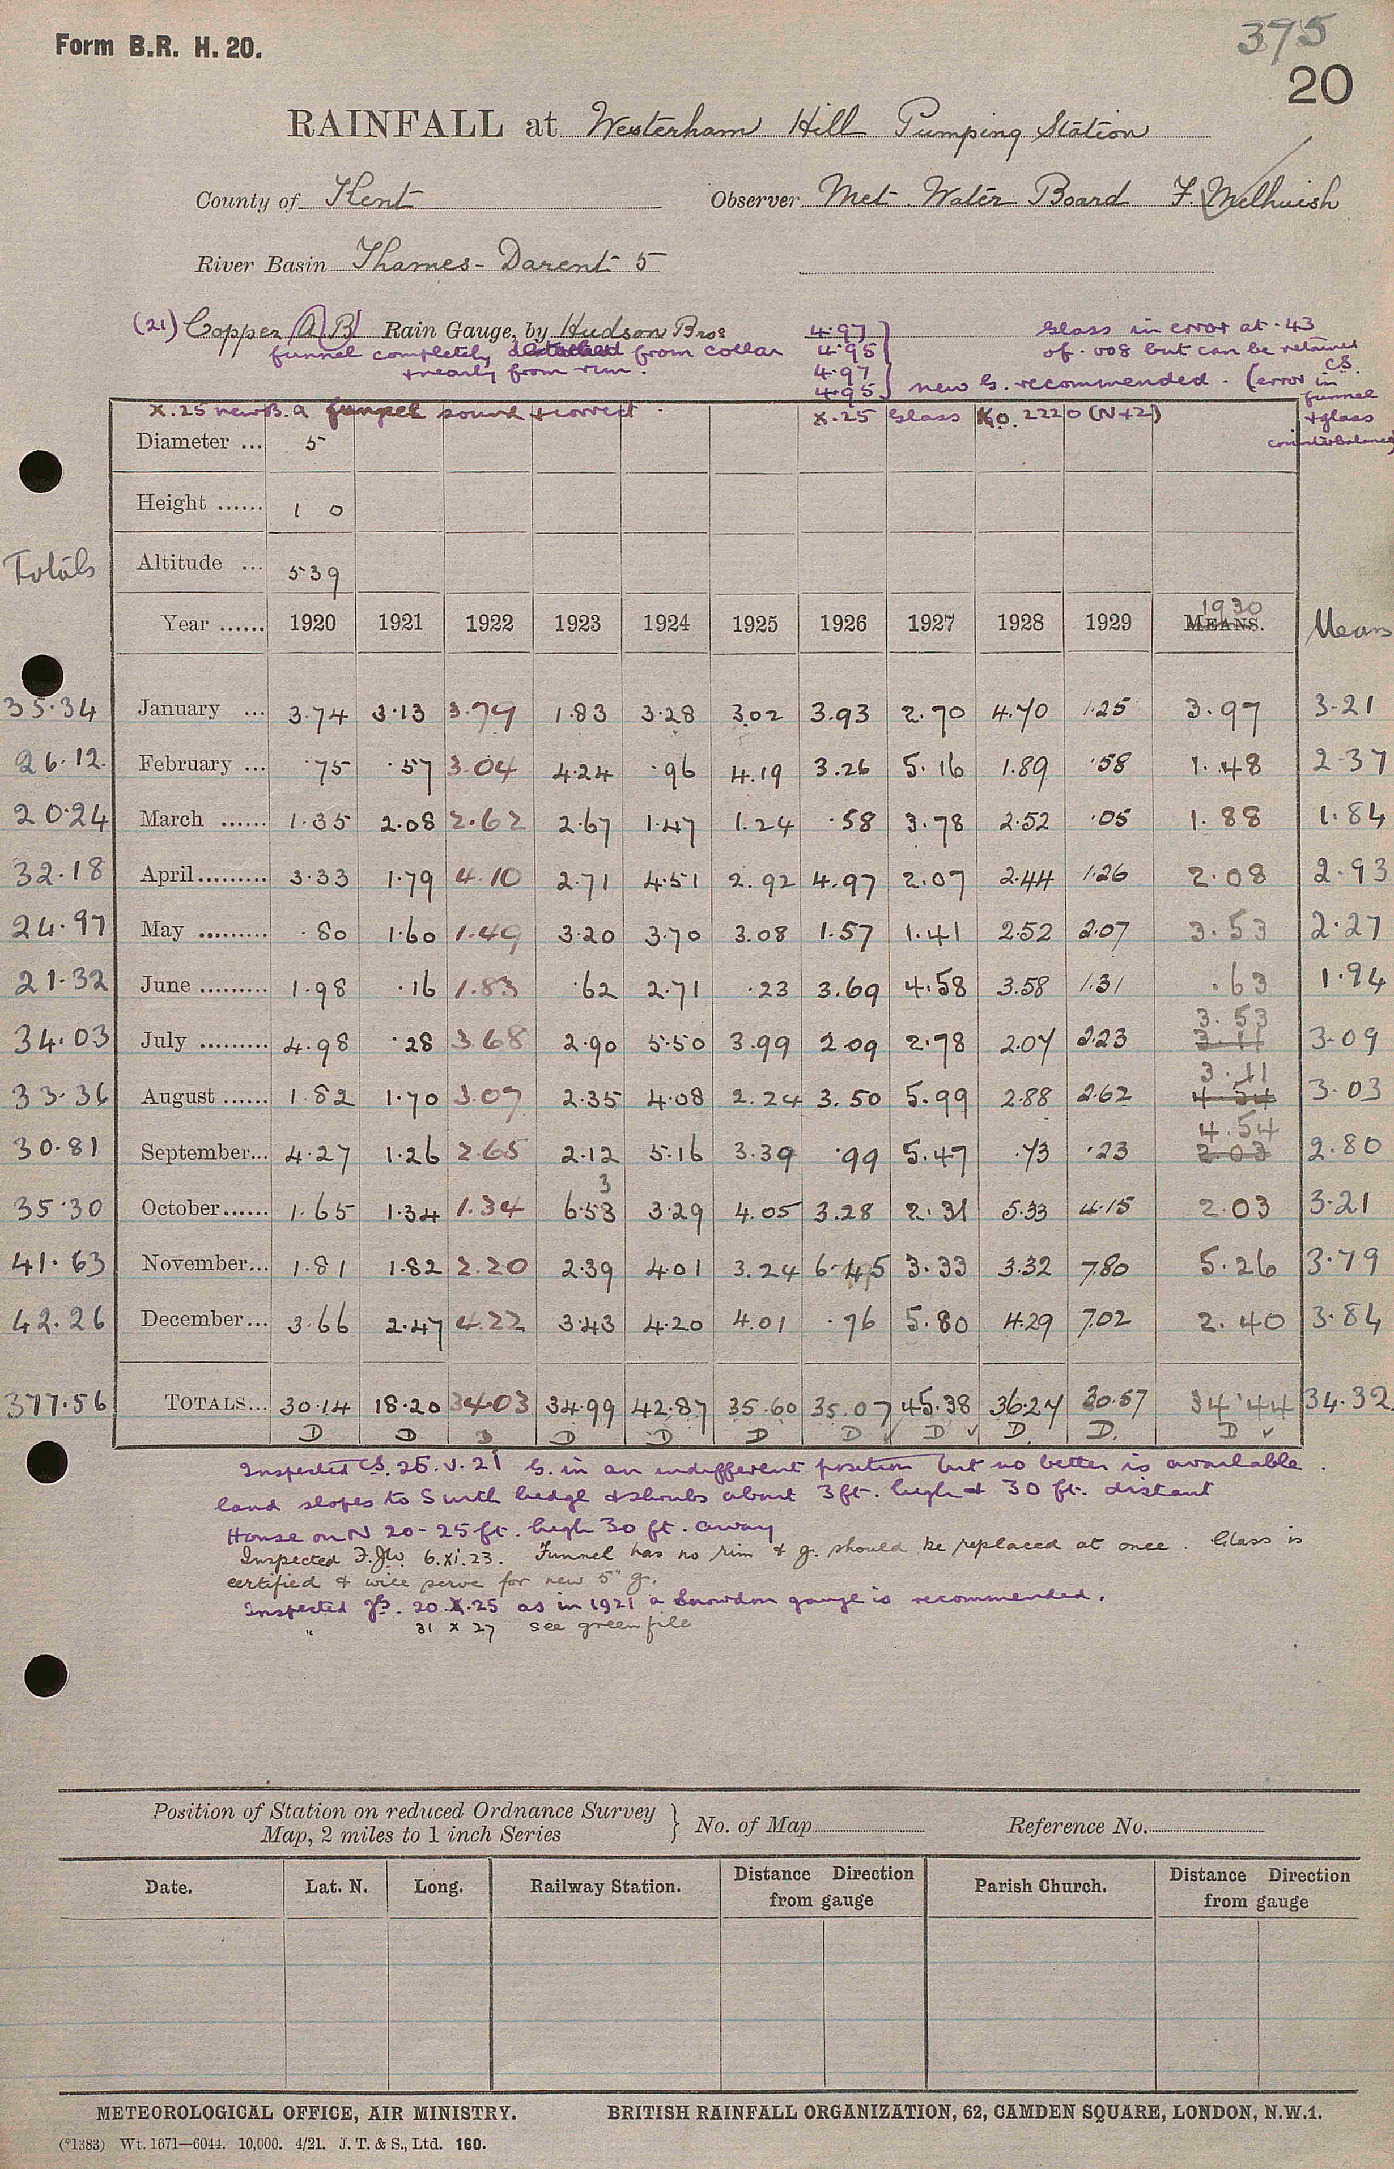 Form B.R. H. 20.
395
20
RAINFALL at Westerham Hill Pumping Station
County of Kent Observer Met. Water Board F. Melhuish
River Basin Thames - Darent 5
(21) Copper A B Rain Gauge, by Hudson Bros
funnel completely detached from collar
& nearly from rim.
4.97
4.95
4.97
4.95
Glass in error at .43
of .008 but can be retained
C.S.
new G. recommended. (error in
funnel
& glass
counterbalance)
X.25 new B. a funnel sound & correct.
X.25 Glass No. 2220 (N+2)
Diameter ... 5
Height ...... 1 0
Altitude ... 539
Totals
Year ...... 1920 1921 1922 1923 1924 1925 1926 1927 1928 1929 1930 MEANS. Means
35.34 January ... 3.74 3.13 3.79 1.83 3.28 3.02 3.93 2.70 4.70 1.25 3.97 3.21
26.12 February ... .75 .57 3.04 4.24 .96 4.19 3.26 5.16 1.89 .58 1.48 2.37
20.24 March ...... 1.35 2.08 2.62 2.67 1.47 1.24 .58 3.78 2.52 .05 1.88 1.84
32.18 April......... 3.33 1.79 4.10 2.71 4.51 2.92 4.97 2.07 2.44 1.26 2.08 2.93
24.97 May ......... .80 1.60 1.49 3.20 3.70 3.08 1.57 1.41 2.52 2.07 3.53 2.27
21.32 June ......... 1.98 .16 1.83 .62 2.71 .23 3.69 4.58 3.58 1.31 .63 1.94
34.03 July ......... 4.98 .28 3.68 2.90 5.50 3.99 2.09 2.78 2.07 2.23 3.53 3.11 3.09
33.36 August ...... 1.82 1.70 3.07 2.35 4.08 2.24 3.50 5.99 2.88 2.62 3.11 4.54 3.03
30.81 September... 4.27 1.26 2.65 2.12 5.16 3.39 .99 5.47 .73 .23 4.54 2.03 2.80
3
35.30 October...... 1.65 1.34 1.34 6.53 3.29 4.05 3.28 2.31 5.33 4.15 2.03 3.21
41.63 November... 1.81 1.82 2.20 2.39 4.01 3.24 6.45 3.33 3.32 7.80 5.26 3.79
42.26 December... 3.66 2.47 4.22 3.43 4.20 4.01 .76 5.80 4.29 7.02 2.40 3.84
377.56 TOTALS... 30.14 18.20 34.03 34.99 42.87 35.60 35.07 45.38 36.27 30.57 34.44 34.32
D D D D D D D ✓ D ✓ D. D. D ✓
Inspected C.S. 26.V.21 G. in an indifferent position but no better is available.
land slopes to S with hedge & shrubs about 3 ft. high & 30 ft. distant
House on N 20-25 ft. high 30 ft. away
Inspected 6.XI.23. Funnel has no rim & g. should be replaced at once. Glass is
certified & will serve for new 5" g.
Inspected 20.X.25 as in 1921 a Snowdon gauge is recommended.
" 31 X 27 see green file
Position of Station on reduced Ordnance Survey
Map, 2 miles to 1 inch Series } No. of Map Reference No.
Date. Lat. N. Long. Railway Station. Distance Direction from gauge Parish Church. Distance Direction from gauge
METEOROLOGICAL OFFICE, AIR MINISTRY. BRITISH RAINFALL ORGANIZATION, 62, CAMDEN SQUARE, LONDON, N.W.1.
(*1383) Wt. 1671—6044. 10,000. 4/21. J. T. & S., Ltd. 160.